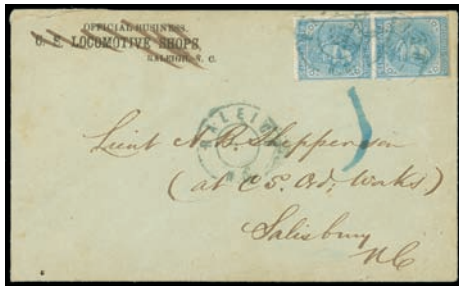 OFFICIAL BUSINESS.
C. S. LOCOMOTIVE SHOPS,
RALEIGH N. C.
RALEIGH
N C
Lieut N. B. Shepperson
(at C S. Ord; Works)
Salisbury
N C